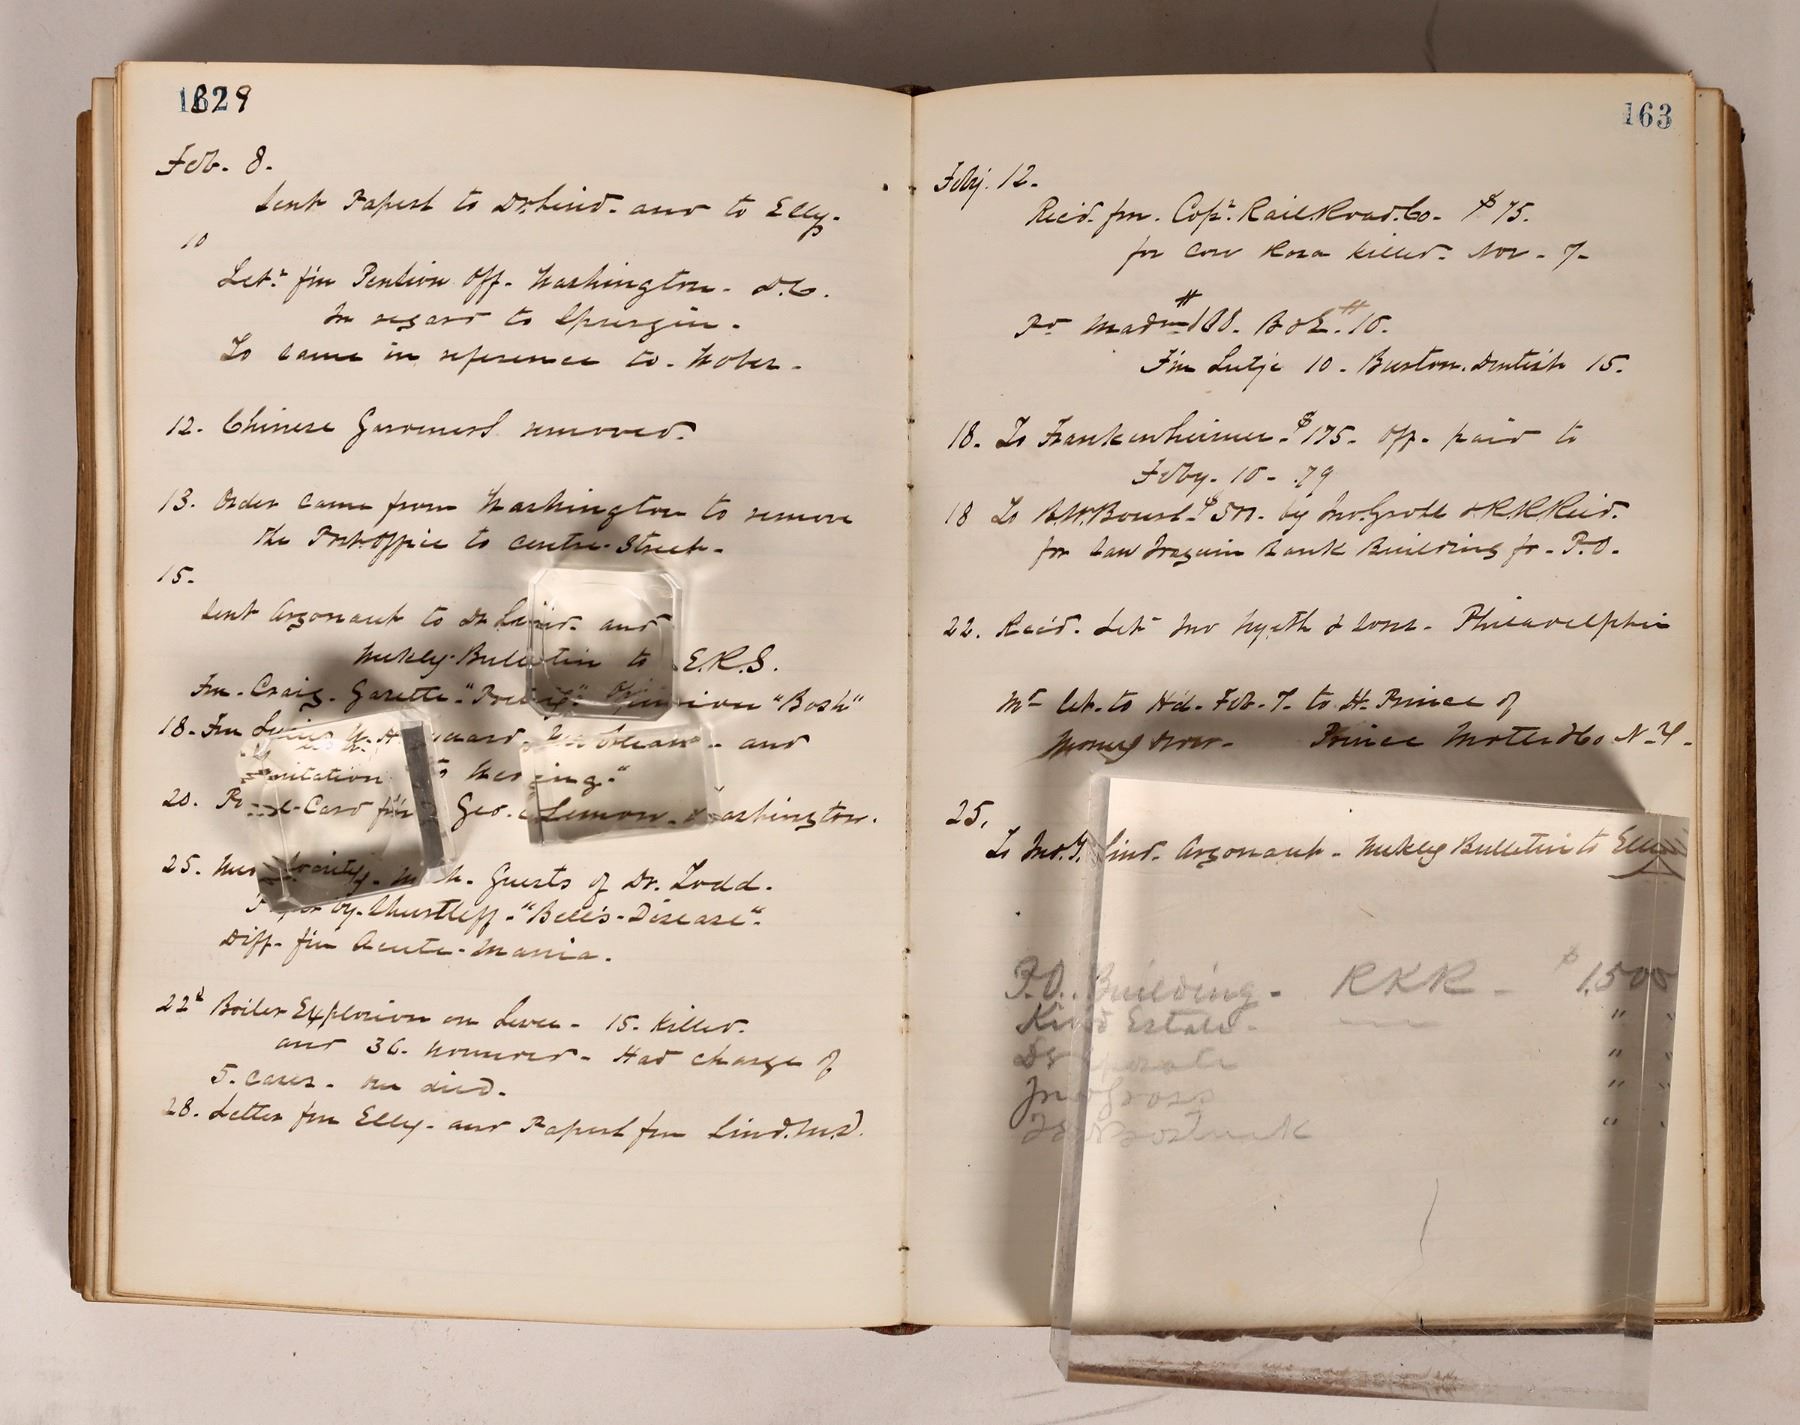 1629
Feb. 8.
Sent Papers to Dr. Lind. and to Elly.
10
Let. fm Pension Off. Washington. D.C.
In regard to Spurgin.
To same in reference to. Wober.
12. Chinese Gardeners removed.
13. Order came from Washington to remove
the Post Office to Centre Street.
15.
Sent Argonaut to Dr Lind. and
Weekly Bulletin to E.R.S.
Fm. Craig. Gazette. "Bosh"
18. Fm and
20. Card fm Geo. Lemon. Washington.
25. Guests of Dr. Todd.
by. Shurtleff. "Bell's Disease".
Diff. fm Acute. Mania.
22d Boiler Explosion on Levee. 15. killed.
and 36. wounded. Had charge of
5. cases. one died.
28. Letter fm Elly. and Papers fm Lind. M.D.
163
Feby. 12.
Rec'd. fm. Cop. Rail Road. Co. $75.
for Cow Rosa killed. Nov. 7.
Pd # 188. #10.
Fm Lutje 10. Burton. Dentist 15.
18. To Frankenheimer. $175. Off. paid to
Feby. 10. 79
18 To $500. by Jno. Grohl & R.K. Reid.
for San Joaquin Bank Building for P.O.
22. Rec'd. Let. Jno Wyeth & Sons. Philadelphia
let. to Feb. 7. to H. Prince of
Money Order. Prince Co N.Y.
25.
To Jno. T. Lind. Argonaut. Weekly Bulletin to Ellen
P.O. Building. R K R $1,500
Kidd Estate. " "
Dr " "
Jno Gross " "
" "